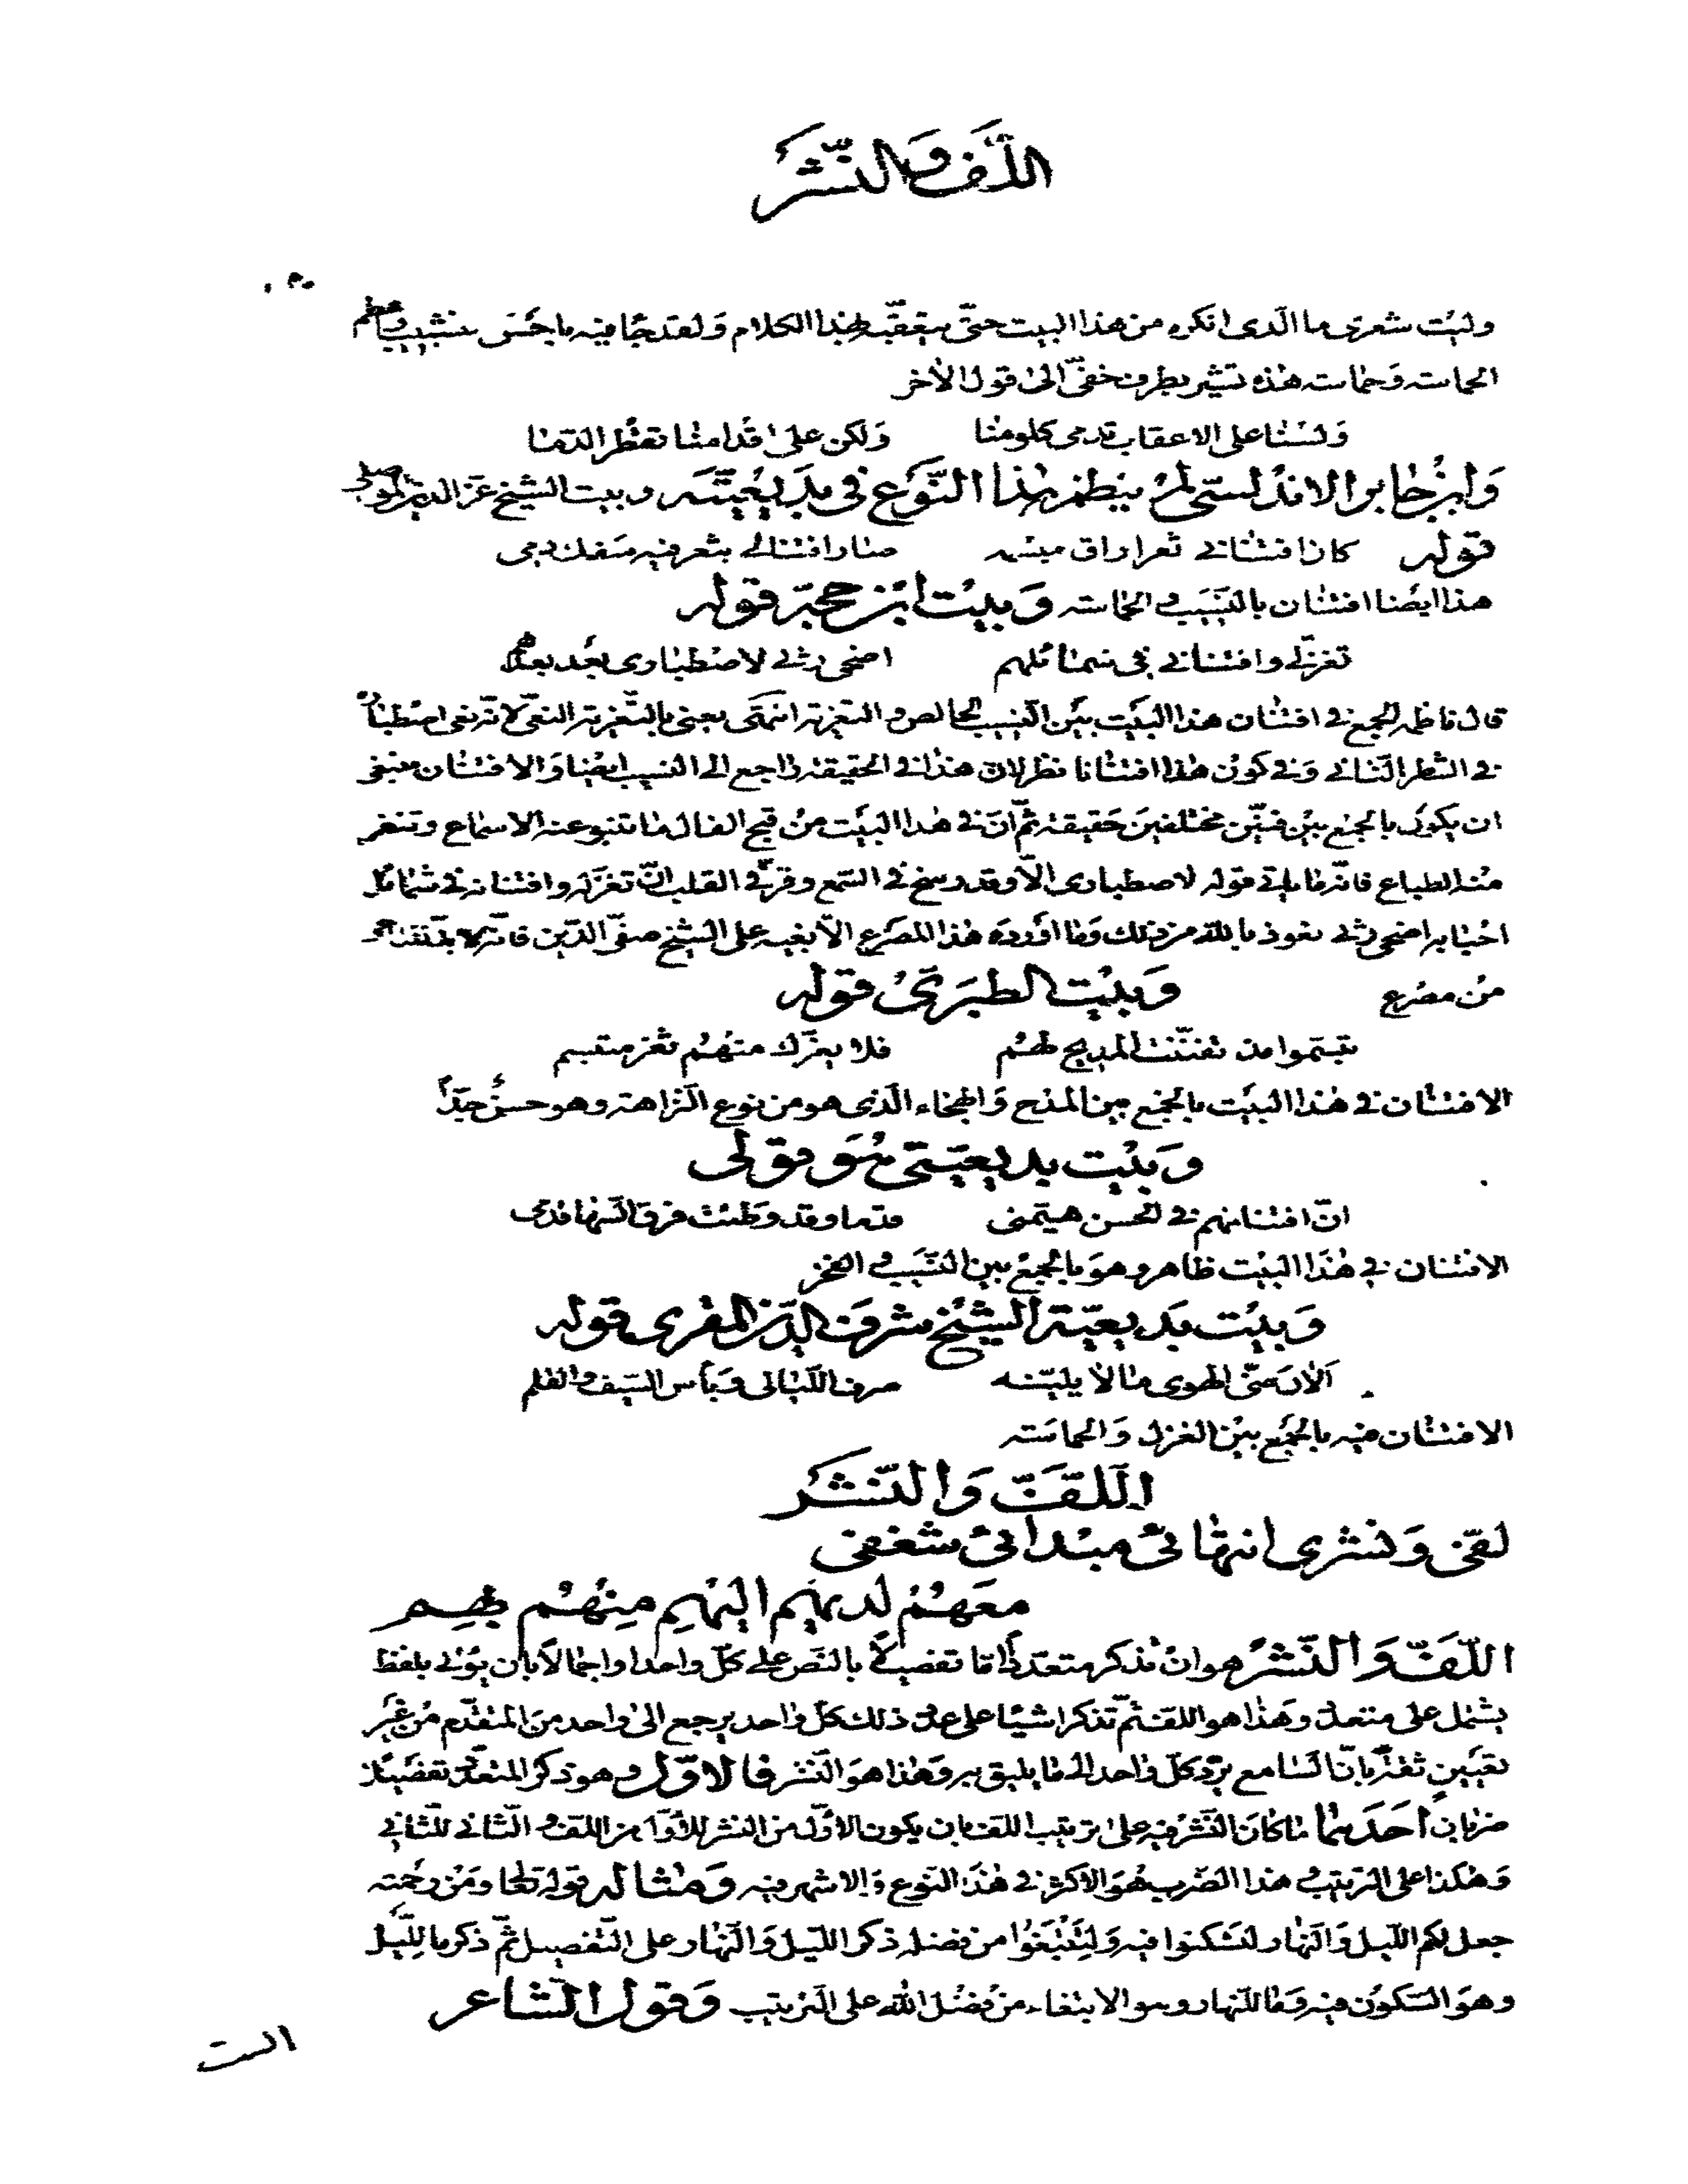 اللّف والنّشر
وليت شعرى ما الّذى انكره من هذا البيت حتّى يتعقّبه بهذا الكلام ولقد جاء فيه باحسن تشبيب واعظم
الحماسة وحماسته هذه تشير بطرف خفىّ الى قول الآخر
ولسنا على الاعقاب تدمى كلومنا ولكن على اقدامنا تقطر الدّما
وابن جابر الاندلسىّ لم ينظم هذا النّوع فى بديعيّته وبيت الشيخ عزّ الدين الموصلى
قوله كان افتنانى بثغر راق مبسمه صار افتنانى بثغر فيه سفك دمى
هذا ايضا افتنان بالنّسيب والحماسة وبيت ابن حجّة قوله
تغزّلى وافتنانى فى شمائلهم اضحى رثى لاصطبارى بعد بعدهم
قال ناظمه الجمع فى افتنان هذا البيت بين النّسيب الخالص والتعزية انتهى يعنى بالتّعزية النعى لانّه نعى اصطباره
فى الشطر الثّانى وفى كون هذا افتنانا نظر لانّ هذا فى الحقيقة راجع الى النسيب ايضا والافتنان ينبغى
ان يكون بالجمع بين فنّين مختلفين حقيقة ثمّ انّ فى هذا البيت من قبح الفال ما تنبو عنه الاسماع وتنفر
منه الطباع فانّه ما ياتى قوله لاصطبارى الّا وقد رسخ فى السّمع وقرّ فى القلب انّ تغزّله وافتنانه فى شمائل
احبابه اضحى رثى نعوذ بالله من ذلك وما اورده هذا المصرع الّا بغيه على الشيخ صفىّ الدّين
من مصرع وبيت الطبرىّ قوله
تبسّموا مذ تفنّنت المديح لهم فلا يغرّك منهم ثغر مبتسم
الافتنان فى هذا البيت بالجمع بين المدح والهجاء الّذى هو من نوع النّزاهة وهو حسن جدّاً
وبيت بديعيّتى هو قولى
انّ افتنانهم فى الحسن هيّمنى قدما وقد وطئت فرق السّها قدمى
الافتنان فى هذا البيت ظاهر وهو بالجمع بين النّسيب والفخر
وبيت بديعيّة الشيخ شرف الدّين المقرى قوله
الان منّى الهوى ما لا يليّنه صرف اللّيالى وبأس السّيف والقلم
الافتنان فيه بالجمع بين الغزل والحماسة
اللّفّ والنّشر
لفّى ونشرى انتهائى مبدائى شغفى
معهم لديهم اليهم منهم بهم
اللّفّ والنّشر هو ان تذكر متعدّدا امّا تفصيلا بالنّص على كلّ واحد او اجمالا بان يؤتى بلفظ
يشمل على متعدّد وهذا هو اللفّ ثمّ تذكر اشياء على عدد ذلك كلّ واحد يرجع الى واحد من المتقدّم من غير
تعيين ثقة بانّ السّامع يردّ كلّ واحد الى ما يليق به وهذا هو النّشر فالاوّل وهو ذكر المتعدّد تفصيلا
ضربان احدهما ما كان النّشر فيه على ترتيب اللفّ بان يكون الاوّل من النشر للاوّل من اللفّ والثّانى للثّانى
وهكذا على الترتيب وهذا الضّرب هو الاكثر فى هذا النّوع والاشهر فيه ومثاله قوله تعالى ومن رحمته
جعل لكم اللّيل والنّهار لتسكنوا فيه ولتبتغوا من فضله ذكر اللّيل والنّهار على التّفصيل ثمّ ذكر ما للّيل
وهو السّكون فيه وما للنّهار وهو الابتغاء من فضل الله على الترتيب وقول الشاعر
الست